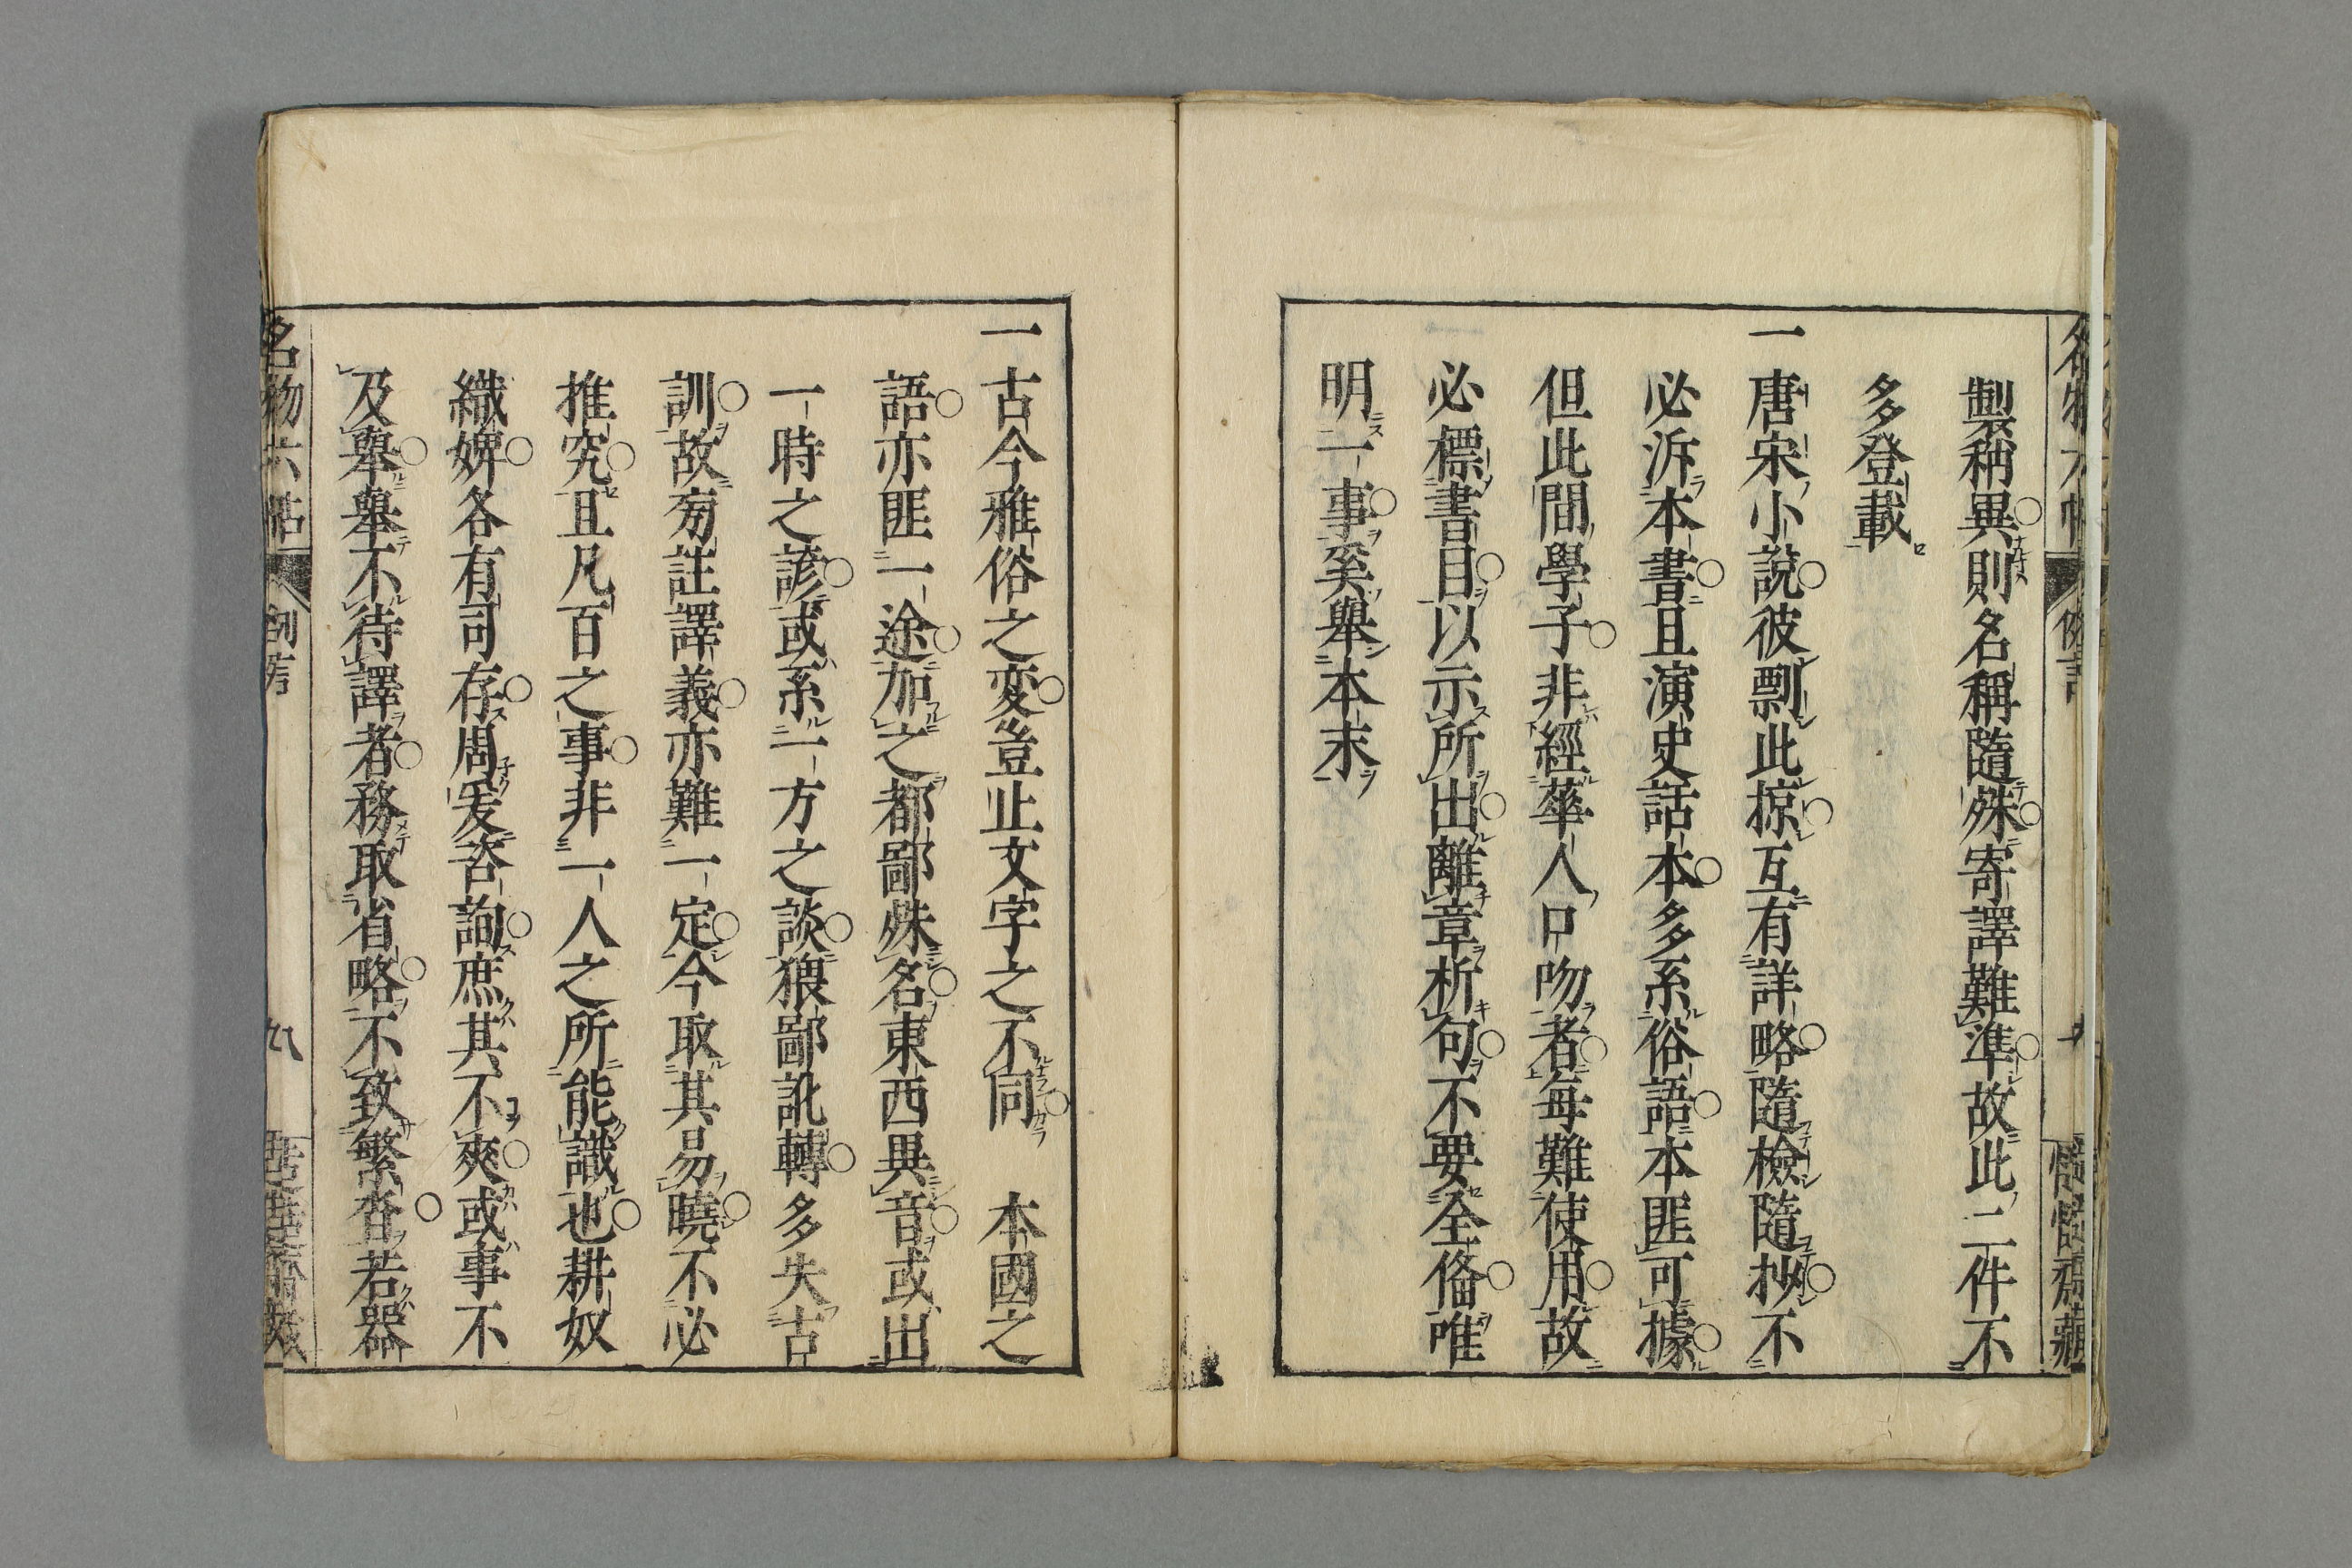 製稱異則名稱隨殊寄譯難準故此二件不
多登載
一唐宋小說彼剽此掠互有詳略隨檢隨抄不
必泝本書且演史話本多系俗語本匪可據
但此間學子非經華人口吻者每難使用故
必標書目以示所出離章析句不要全俻唯
明一事奚舉本末
一古今雅俗之変豈止文字之不同 本國之
語亦匪一途加之都鄙殊名東西異音或出
一時之諺或系一方之談猥鄙訛轉多失古
訓故旁註譯義亦難一定今取其易曉不必
推究且凡百之事非一人之所能識也耕奴
織婢各有司存周爰咨詢庶其不爽或事不
及舉舉不待譯者務取省略不致繁沓若器
名物六帖
九